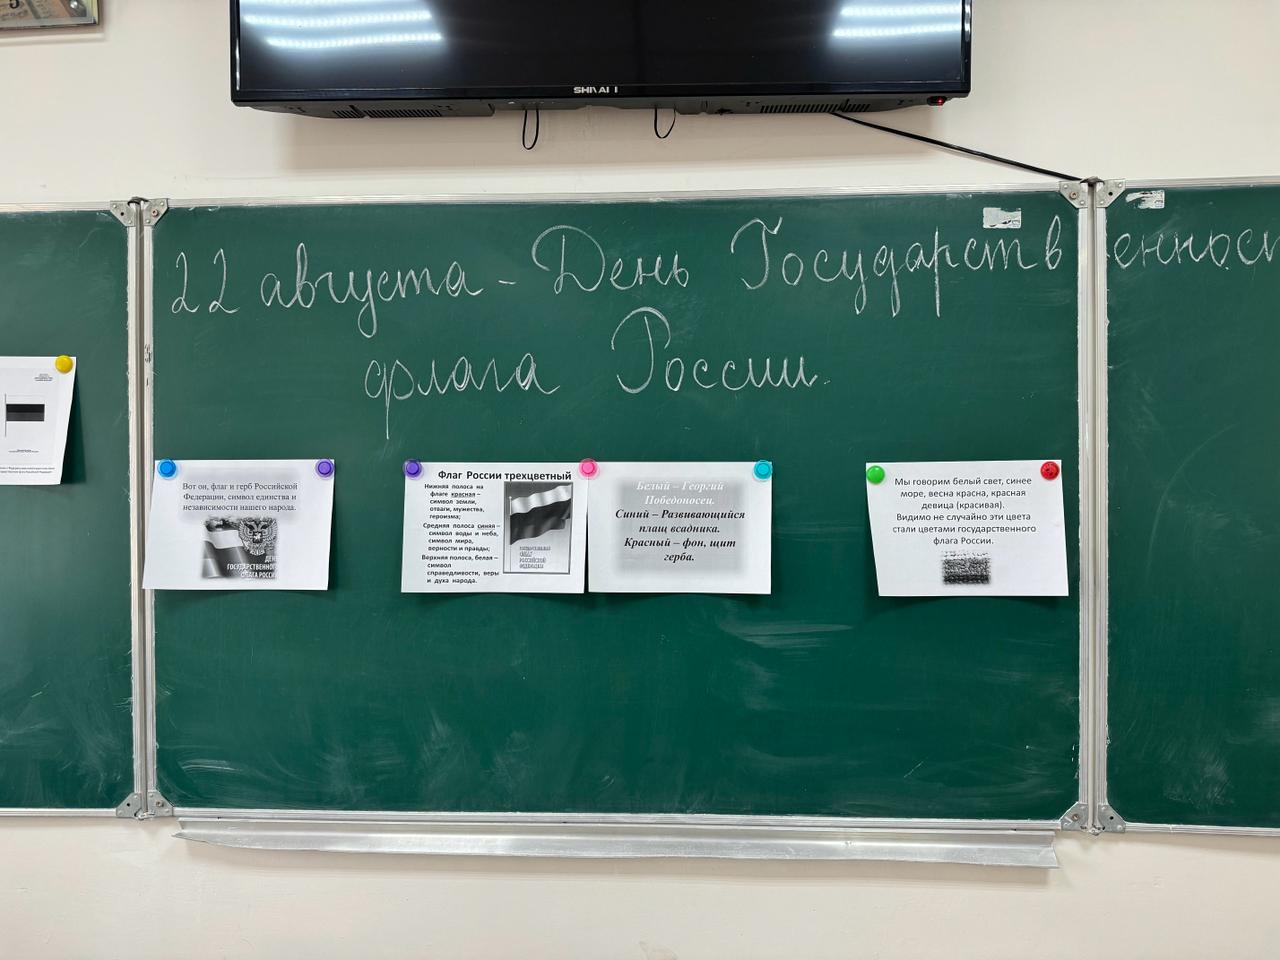 22 августа – День Государственнос
флага России.
Вот он, флаг и герб Российской
Федерации, символ единства и
независимости нашего народа.
ДЕНЬ
ГОСУДАРСТВЕННОГО
ФЛАГА РОССИИ
Флаг России трехцветный
Нижняя полоса на
флаге красная –
символ земли,
отваги, мужества,
героизма;
Средняя полоса синяя –
символ воды и неба,
символ мира,
верности и правды;
Верхняя полоса, белая –
символ
справедливости, веры
и духа народа.
ГОСУДАРСТВЕННЫЙ
ФЛАГ
РОССИЙСКОЙ
ФЕДЕРАЦИИ
Белый – Георгий
Победоносец.
Синий – Развивающийся
плащ всадника.
Красный – фон, щит
герба.
Мы говорим белый свет, синее
море, весна красна, красная
девица (красивая).
Видимо не случайно эти цвета
стали цветами государственного
флага России.